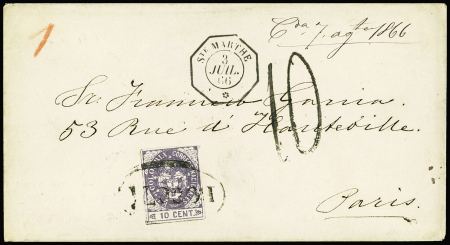 1
Cda 7. agte 1866
STE MARTHE
3
JUIL.
66
10
Sr. Francisco Garcia.
53 Rue d'Hauteville.
10 CENT.
Paris.